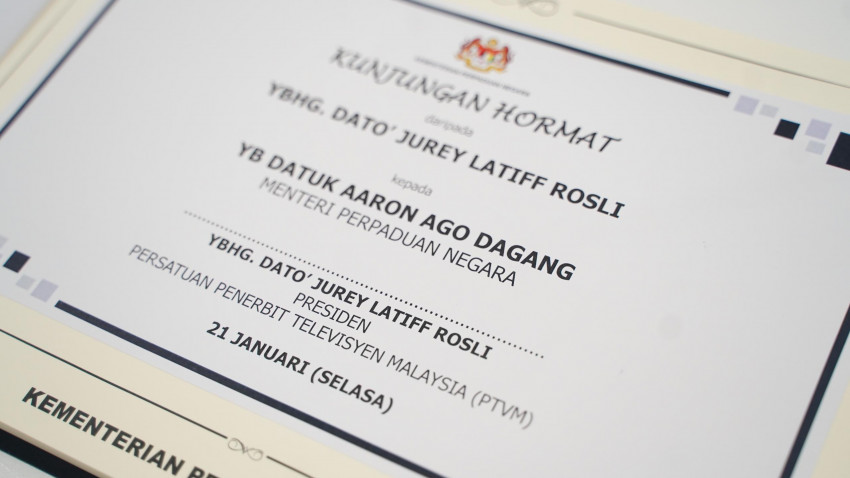 KUNJUNGAN HORMAT
daripada
YBHG. DATO' JUREY LATIFF ROSLI
kepada
YB DATUK AARON AGO DAGANG
MENTERI PERPADUAN NEGARA
YBHG. DATO' JUREY LATIFF ROSLI
PRESIDEN
PERSATUAN PENERBIT TELEVISYEN MALAYSIA (PTVM)
21 JANUARI (SELASA)
KEMENTERIAN